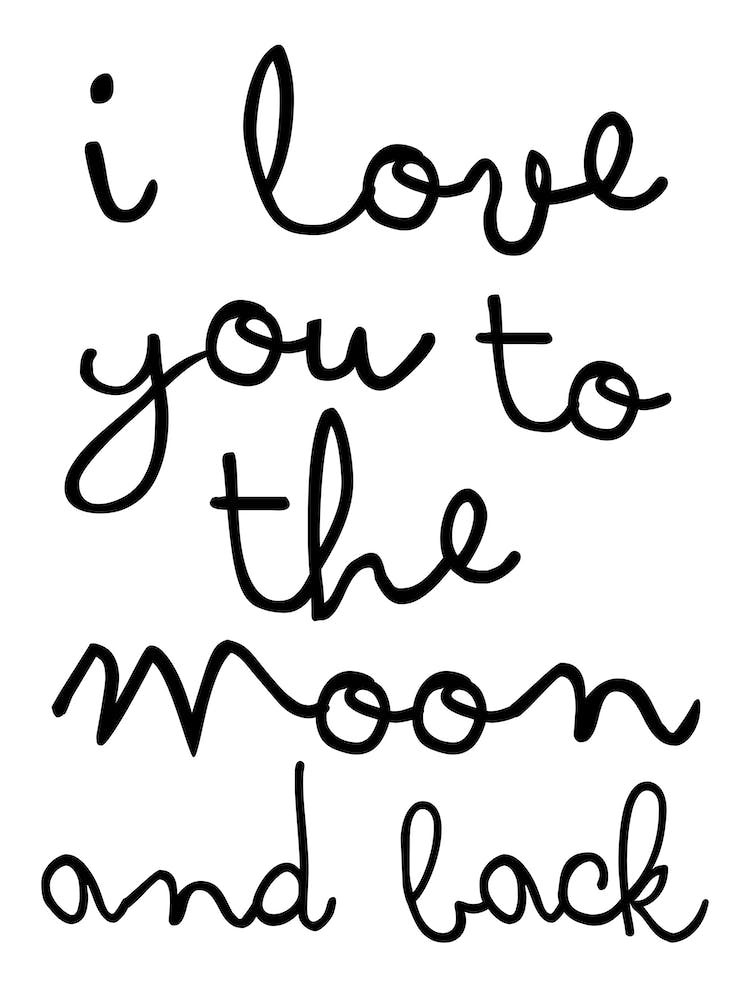 i love
you to
the
moon
and back